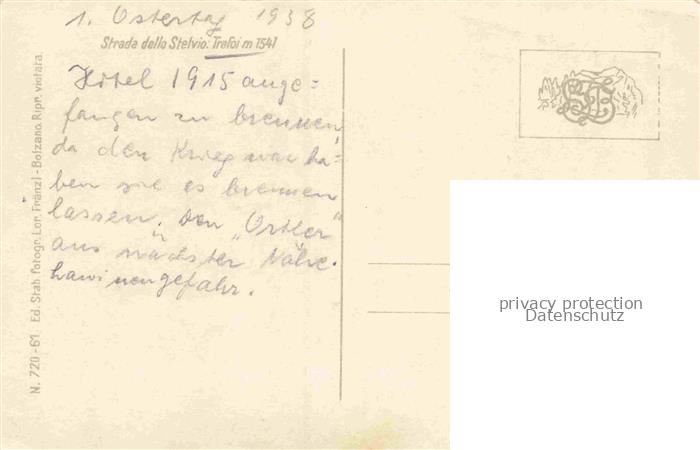 1. Ostertag 1938
Strada dello Stelvio: Trafoi m 1541
Hotel 1915 ange=
fangen zu brennen,
da den Krieg war ha=
ben sie es brennen
lassen. Den „Ortler“
aus nächster Nähe.
Lawinengefahr.
N. 720-61 Ed. Stab. fotogr. Lor. Fränzl - Bolzano. Ripr. vietata.
privacy protection
Datenschutz